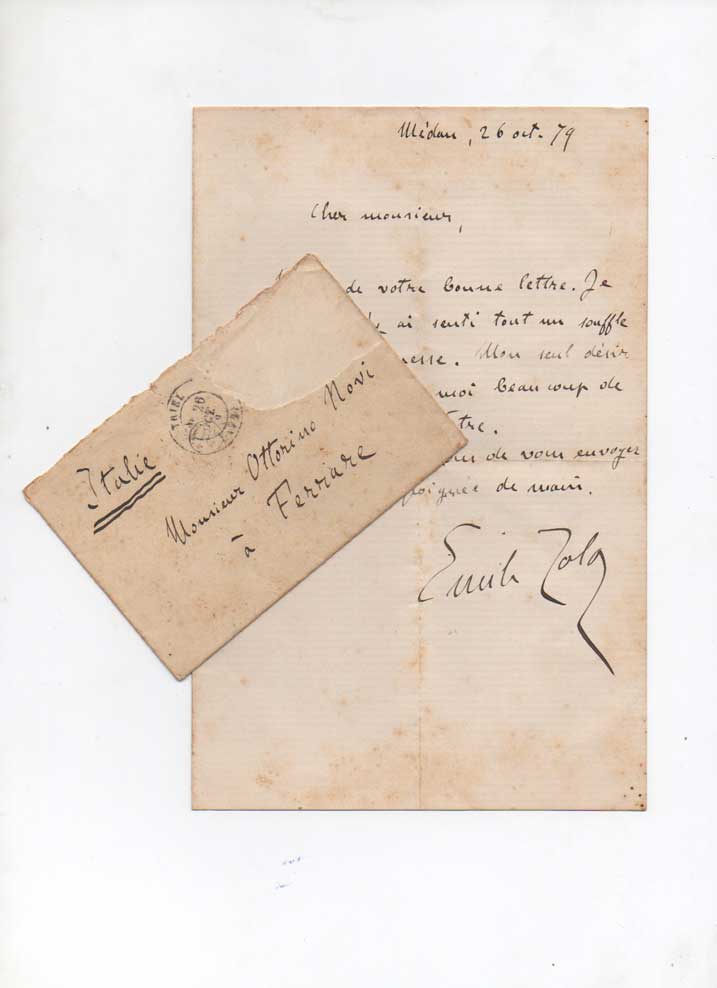 Médan, 26 oct. 79
Cher monsieur,
de votre bonne lettre. Je
ai senti tout un souffle
nesse. Mon seul désir
moi beaucoup de
tre.
de vous envoyer
poignée de main.
Emile Zola
TRIEL
26
OCT
Italie
Monsieur Ottorino Novi
à Ferrare